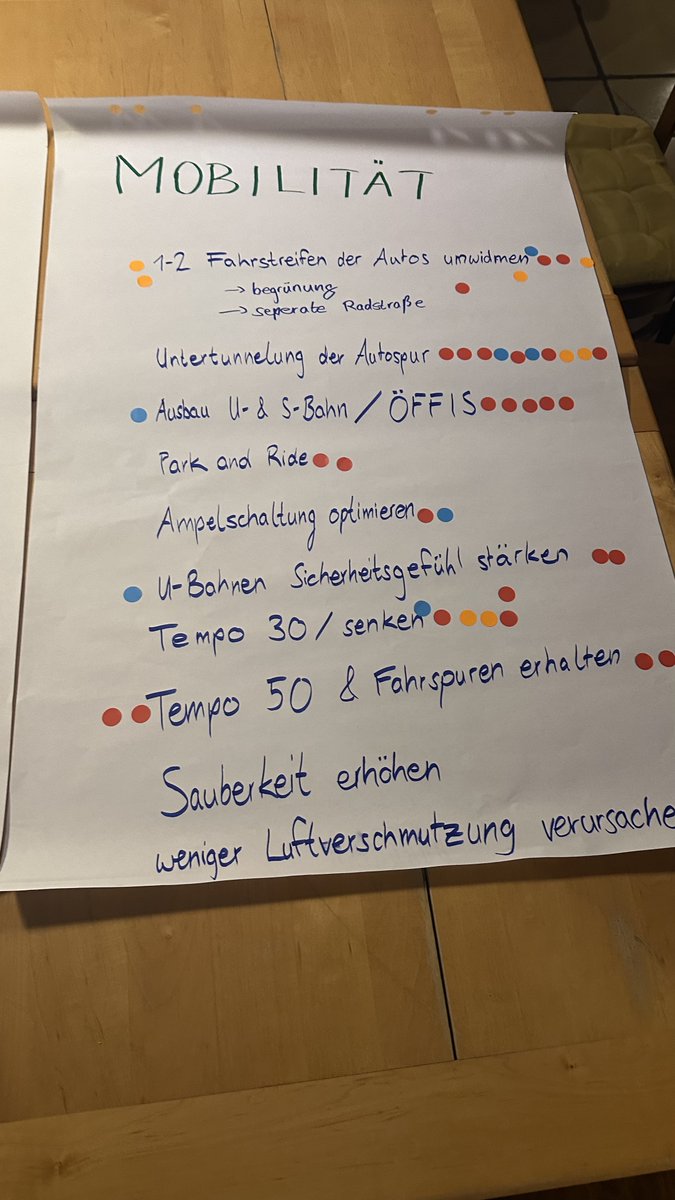 MOBILITÄT
1-2 Fahrstreifen der Autos umwidmen
→ begrünung
→ seperate Radstraße
Untertunnelung der Autospur
Ausbau U- & S-Bahn / ÖFFIS
Park and Ride
Ampelschaltung optimieren
U-Bahnen Sicherheitsgefühl stärken
Tempo 30 / senken
Tempo 50 & Fahrspuren erhalten
Sauberkeit erhöhen
weniger Luftverschmutzung verursache